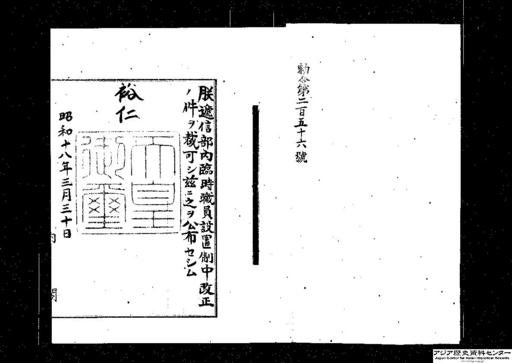 勅令第二百五十六號
朕遞信部內臨時職員設置制中改正
ノ件ヲ裁可シ茲ニ之ヲ公布セシム
裕仁
天皇御璽
昭和十八年三月三十日
アジア歴史資料センター
Japan Center for Asian Historical Records